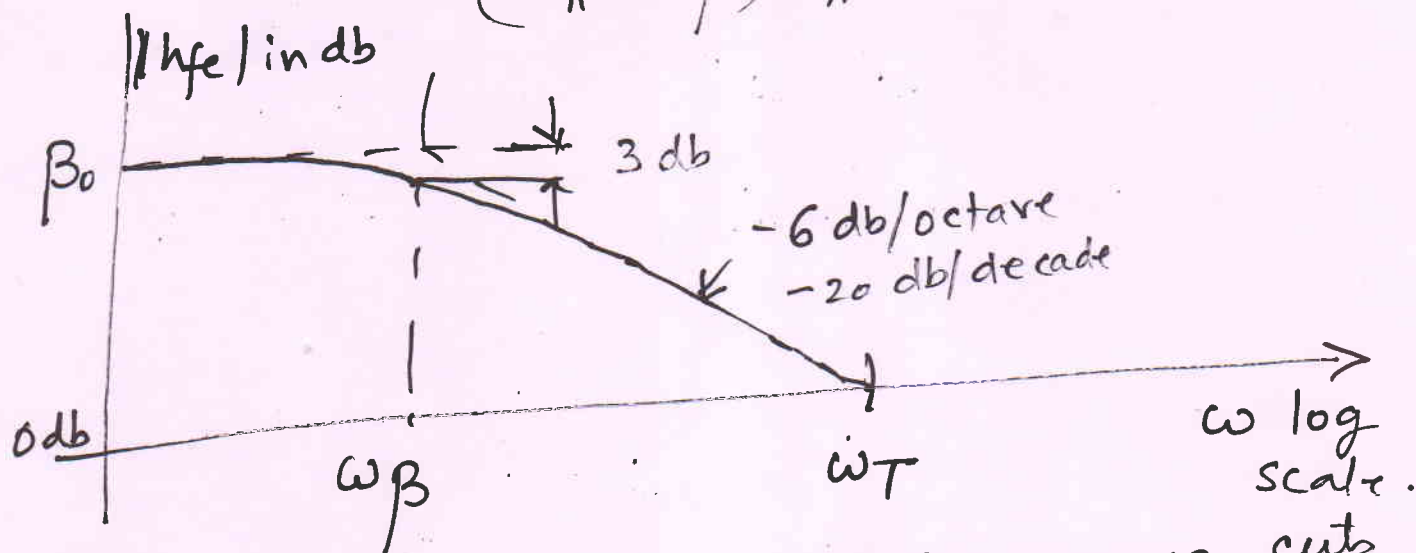 |hfe| in db
β₀
3 db
-6 db/octave
-20 db/decade
0 db
ωβ
ωT
ω log
scale.
cuts